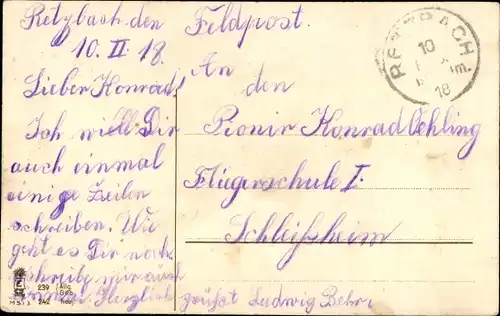 Retzbach den
10. II. 18.
Lieber Konrad!
Ich will Dir
auch einmal
einige Zeilen
schreiben. Wie
geht es Dir noch
schreibe mir auch
einmal. Herzlich grüßt Ludwig Behr
Feldpost.
An
den
Pionir Konrad Öhling
Fliegerschule I.
Schleißheim
RETZBACH
10
18
239
242